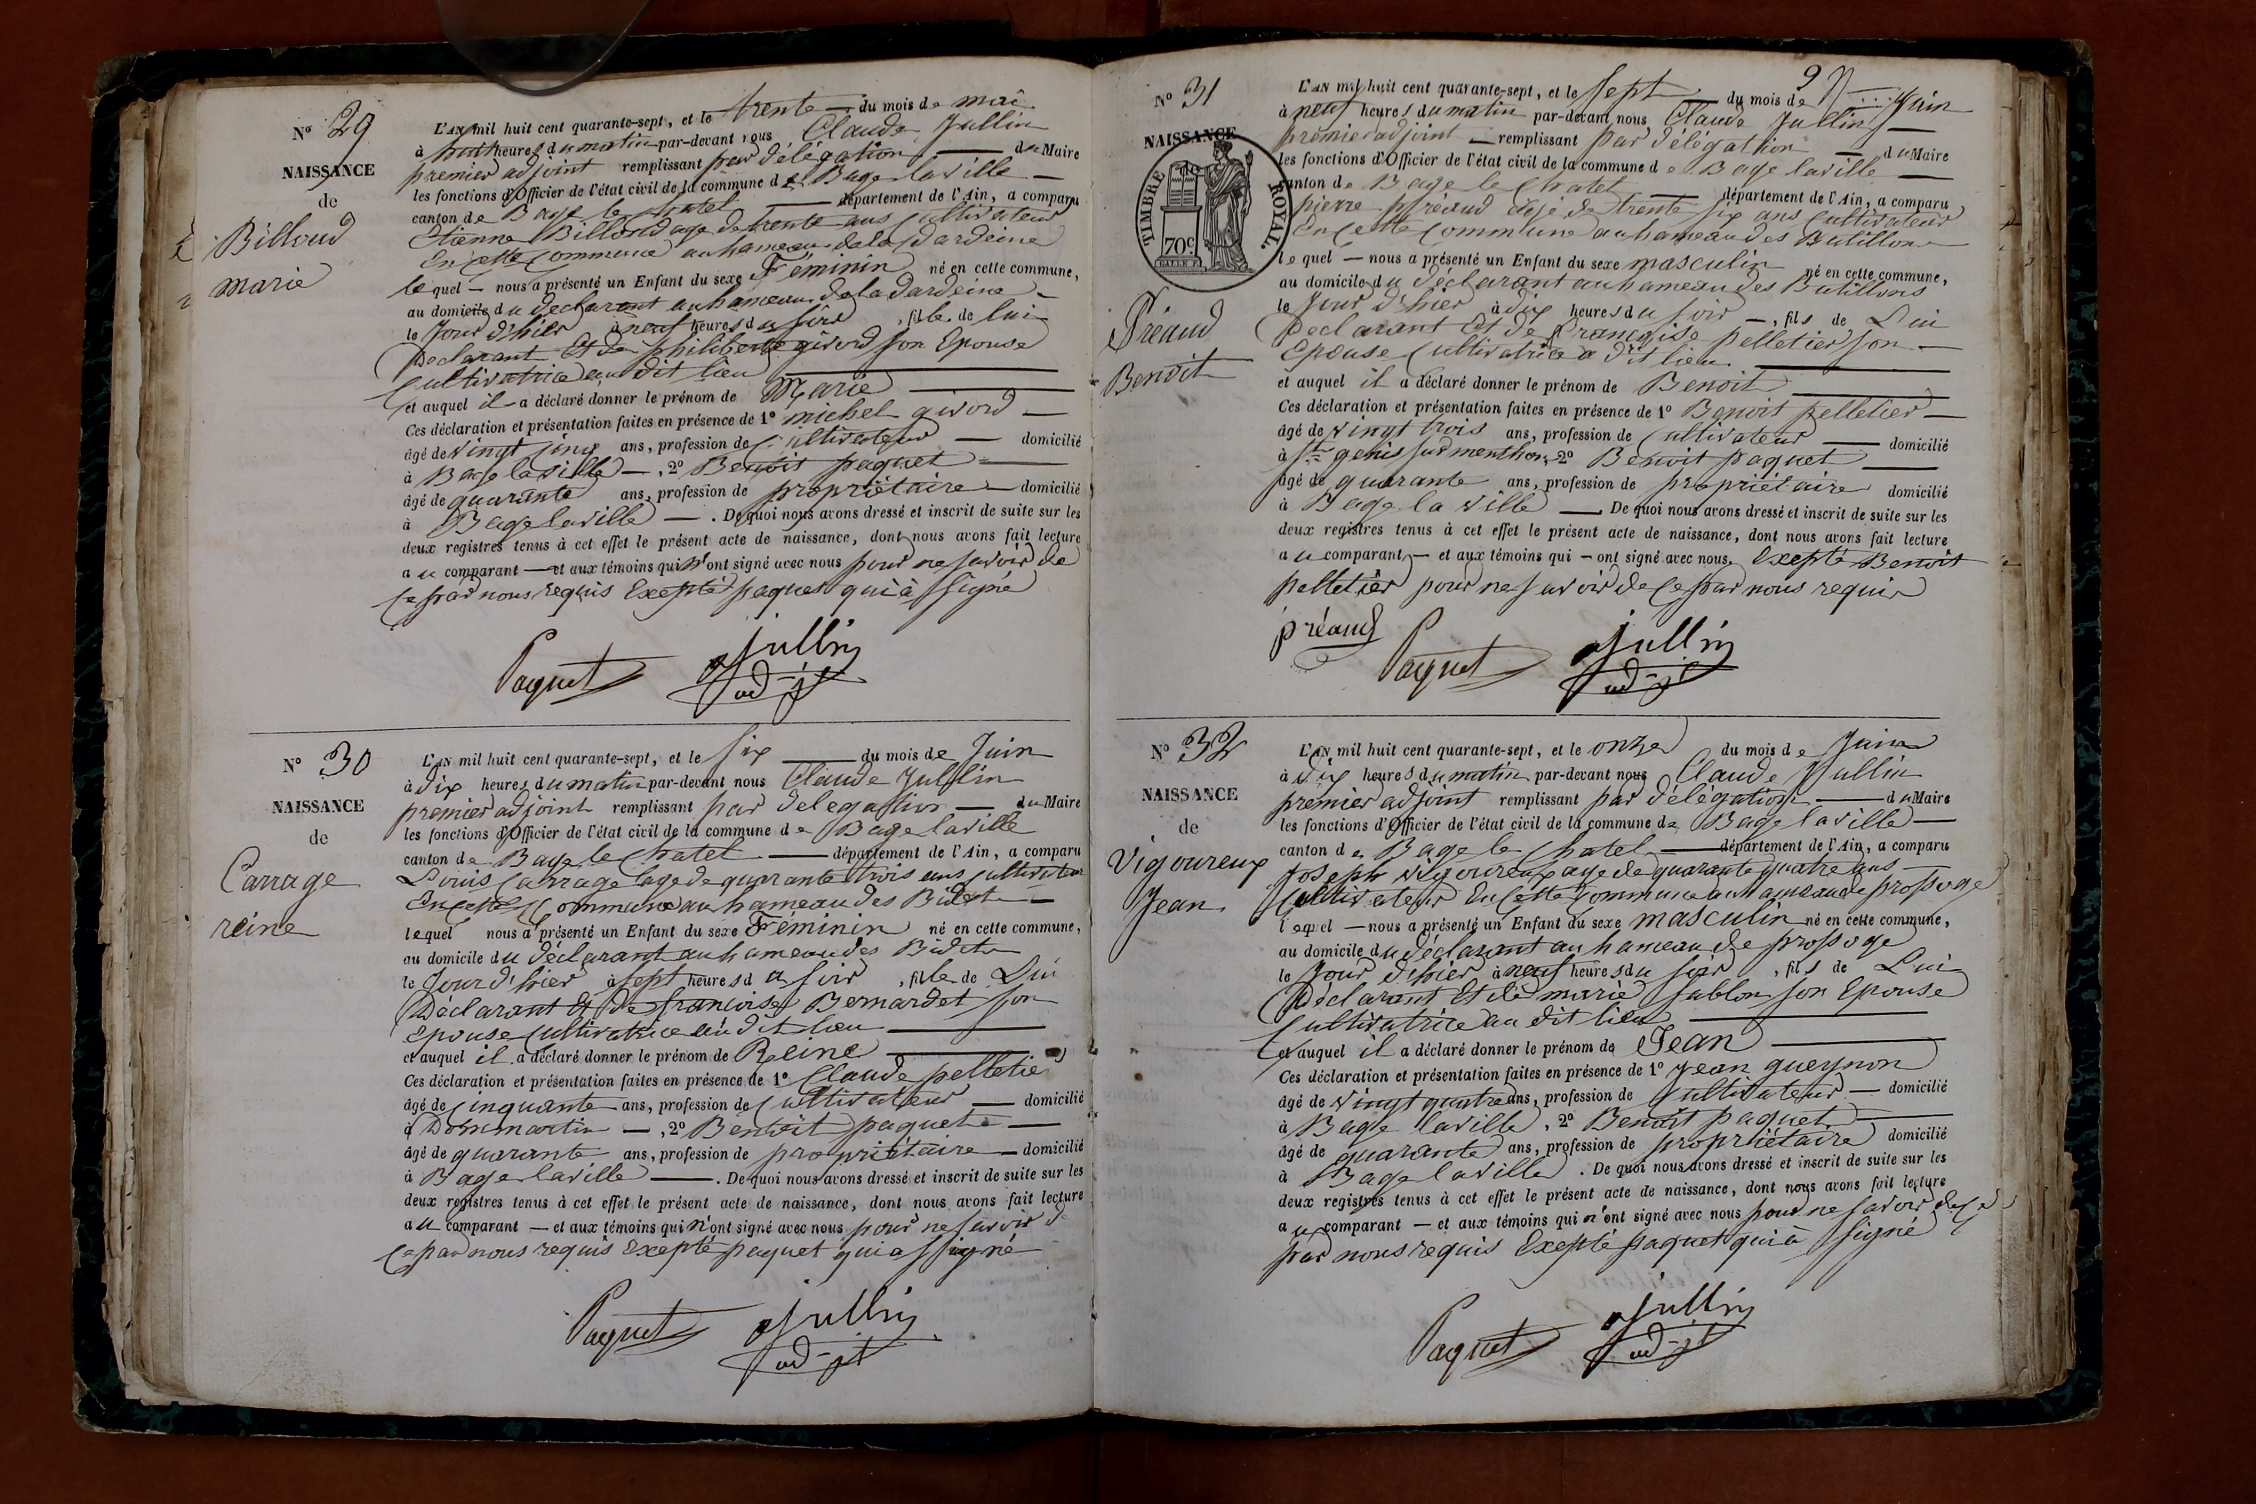 N° 29
NAISSANCE
de
Billoud
marie
L'AN mil huit cent quarante-sept, et le trente du mois de mai
à huit heures du matin par-devant nous Claude Jullin
premier adjoint remplissant par délégation du Maire
les fonctions d'Officier de l'état civil de la commune de Bage laville
canton de Bage le Chatel département de l'Ain, a comparu
Etienne Billoud age de trente ans Cultivateur
En cette Commune au hameau de la dardeine
lequel nous a présenté un Enfant du sexe Féminin né en cette commune,
au domicile du declarant au hameau de la dardeine
le Jour d'hier à neuf heures du soir, fille de lui
Declarant Et de philiberte givord son Epouse
Cultivatrice au dit lieu
et auquel il a déclaré donner le prénom de Marie
Ces déclaration et présentation faites en présence de 1° michel givord
âgé de vingt cinq ans, profession de Cultivateur domicilié
à Bage laville, 2° Benoit paquet
âgé de quarante ans, profession de propriétaire domicilié
à Bage laville. De quoi nous avons dressé et inscrit de suite sur les
deux registres tenus à cet effet le présent acte de naissance, dont nous avons fait lecture
au comparant et aux témoins qui n'ont signé avec nous pour ne savoir de
Ce par nous requis Exepté paquet qui à signé
Paquet Jullin
adj-t
N° 30
NAISSANCE
de
Carrage
reine
L'AN mil huit cent quarante-sept, et le six du mois de Juin
à dix heures du matin par-devant nous Claude Jullin
premier adjoint remplissant par délegation du Maire
les fonctions d'Officier de l'état civil de la commune de Bage laville
canton de Bage le Chatel département de l'Ain, a comparu
Louis Carrage age de quarante trois ans Cultivateur
En cette Commune au hameau des Bidets
lequel nous a présenté un Enfant du sexe Féminin né en cette commune,
au domicile du déclarant au hameau des Bidets
le Jour d'hier à sept heures du soir, fille de Lui
Déclarant Et de francoise Bernardet son
epouse Cultivatrice au dit lieu
et auquel il a déclaré donner le prénom de Reine
Ces déclaration et présentation faites en présence de 1° Claude pelletier
âgé de Cinquante ans, profession de Cultivateur domicilié
à Dommartin, 2° Benoit paquet
âgé de quarante ans, profession de propriétaire domicilié
à Bage laville. De quoi nous avons dressé et inscrit de suite sur les
deux registres tenus à cet effet le présent acte de naissance, dont nous avons fait lecture
au comparant et aux témoins qui n'ont signé avec nous pour ne savoir d
Ce par nous requis Exepté paquet qui a signé
Paquet Jullin
adj-t
9
N° 31
NAISSANCE
de
TIMBRE ROYAL.
70c
Préaud
Benoit
L'AN mil huit cent quarante-sept, et le Sept du mois de Juin
à neuf heures du matin par-devant nous Claude Jullin
premier adjoint remplissant par délégation du Maire
les fonctions d'Officier de l'état civil de la commune de Bage laville
canton de Bage le Chatel département de l'Ain, a comparu
pierre préaud agé de trente six ans Cultivateur
En cette Commune au hameau des Butillons
lequel nous a présenté un Enfant du sexe masculin né en cette commune,
au domicile du déclarant au hameau des Butillons
le Jour d'hier à dix heures du soir, fils de Lui
Declarant Et de françoise pelletier son
Epouse Cultivatrice a dit lieu
et auquel il a déclaré donner le prénom de Benoit
Ces déclaration et présentation faites en présence de 1° Benoit pelletier
âgé de vingt trois ans, profession de Cultivateur domicilié
à St genis sur menthon, 2° Benoit paquet
âgé de quarante ans, profession de propriétaire domicilié
à Bage la ville De quoi nous avons dressé et inscrit de suite sur les
deux registres tenus à cet effet le présent acte de naissance, dont nous avons fait lecture
au comparant et aux témoins qui ont signé avec nous, Exepté Benoit
pelletier pour ne savoir de Ce par nous requis
préaud Paquet Jullin
adj-t
N° 32
NAISSANCE
de
Vigoureux
Jean
L'AN mil huit cent quarante-sept, et le onze du mois de Juin
à dix heures du matin par-devant nous Claude Jullin
premier adjoint remplissant par délégation du Maire
les fonctions d'Officier de l'état civil de la commune de Bage laville
canton de Bage le Chatel département de l'Ain, a comparu
Joseph vigoureux age de quarante quatre ans
Cultivateur En Cette Commune au hameau de prossoge
lequel nous a présenté un Enfant du sexe masculin né en cette commune,
au domicile du déclarant au hameau de prossoge
le Jour d'hier à neuf heures du soir, fils de Lui
Déclarant Et de marie sablon son Epouse
Cultivatrice au dit lieu
et auquel il a déclaré donner le prénom de Jean
Ces déclaration et présentation faites en présence de 1° Jean gueynon
âgé de vingt quatre ans, profession de Cultivateur domicilié
à Bage laville, 2° Benoit paquet
âgé de quarante ans, profession de propriétaire domicilié
à Bage laville. De quoi nous avons dressé et inscrit de suite sur les
deux registres tenus à cet effet le présent acte de naissance, dont nous avons fait lecture
au comparant et aux témoins qui n'ont signé avec nous pour ne savoir de Ce
par nous requis Exepté paquet qui à signé
Paquet Jullin
adj-t